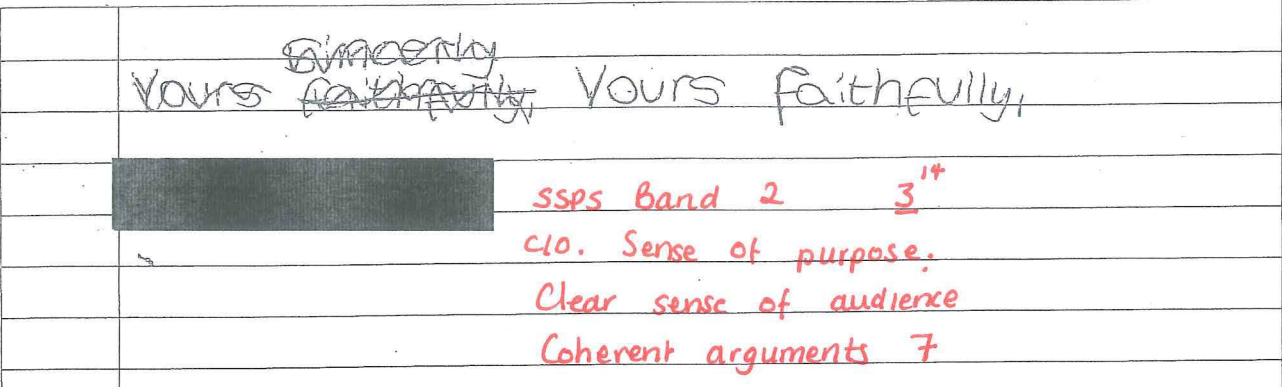 Sincerly
Yours faithfully, Yours faithfully,
SSPS Band 2 3 14
C/O. Sense of purpose.
Clear sense of audience
Coherent arguments 7